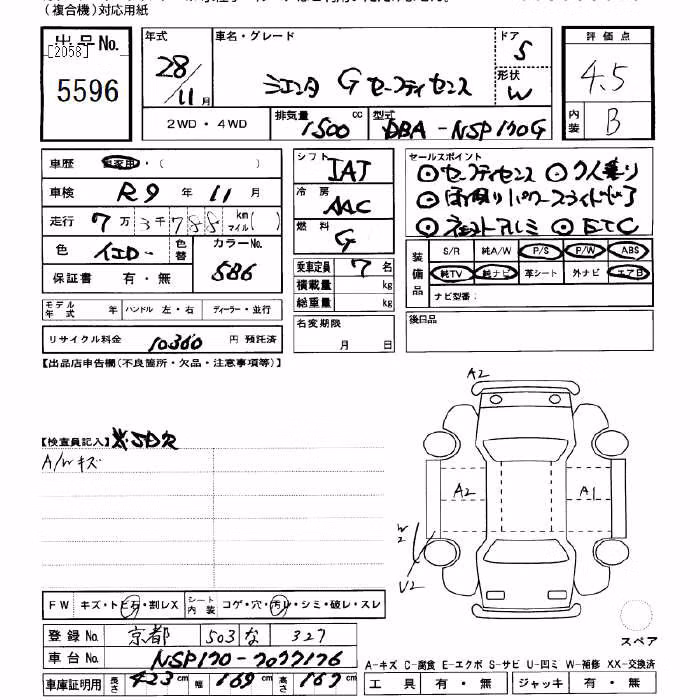 (複合機)対応用紙
出品No. [2058] 5596
年式 28/11月
車名・グレード シエンタ G セーフティセンス
ドア 5
形状 W
評価点 4.5
内装 B
2WD・4WD
排気量 1500 cc
型式 DBA-NSP170G
車歴 自家用・( )
車検 R9年11月
走行 7万3千788 km マイル( )
色 イエロー 色替 カラーNo. 5B6
保証書 有・無
シフト IAT
冷房 AAC
燃料 G
乗車定員 7名
積載量 kg
総重量 kg
セールスポイント
◎セーフティセンス ◎7人乗り
◎両側パワースライドドア
◎ネストアルミ ◎ETC
装備品
S/R 純A/W P/S P/W ABS
純TV 純ナビ 革シート 外ナビ エアB
ナビ型番:
モデル年式 年 ハンドル 左・右 ディーラー・並行
名変期限 月 日
後日品
リサイクル料金 10360 円 預託済
【出品店申告欄(不良箇所・欠品・注意事項等)】
【検査員記入】
A/Wキズ
A2
A2
A1
W2
U2
FW キズ・トビ石・割レX シート内装 コゲ・穴・汚レ・シミ・破レ・スレ
スペア
登録No. 京都 503 な 327
車台No. NSP170-7077176
A-キズ C-腐食 E-エクボ S-サビ U-凹ミ W-補修 XX-交換済
車庫証明用 長さ 423cm 幅 169cm 高さ 167cm
工具 有・無 ジャッキ 有・無